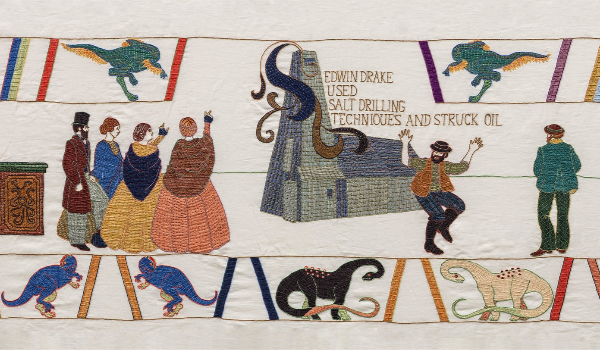 EDWIN DRAKE
USED
SALT DRILLING
TECHNIQUES AND STRUCK OIL